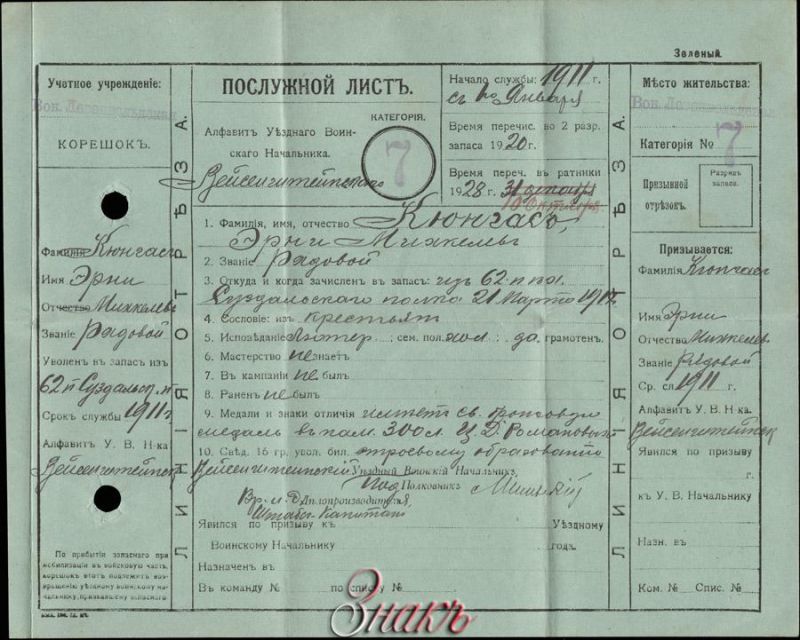 Зеленый.
Учетное учрежденіе:
КОРЕШОКЪ.
Фамилія Кюнгасъ
Имя Эрни
Отчество Михкелевъ
Званіе Рядовой
Уволенъ въ запасъ изъ
62 п Суздальск. п.
Срокъ службы 1911 г
Алфавитъ У. В. Н-ка
Вейсенштейнск
По прибытіи запаснаго при
мобилизаціи въ войсковую часть,
корешокъ этотъ подлежитъ воз-
вращенію уѣздному воинскому на-
чальнику, призвавшему запаснаго
ЛИНІЯ ОТРѢЗА.
ПОСЛУЖНОЙ ЛИСТЪ.
КАТЕГОРІЯ.
7
Алфавитъ Уѣзднаго Воин-
скаго Начальника.
Вейсенштейнскаго
Начало службы: 1911 г.
съ 1го Января
Время перечис. во 2 разр.
запаса 1920 г.
Время переч. въ ратники
1928 г.
10 Октября
1. Фамилія, имя, отчество Кюнгасъ,
Эрни Михкелевъ
2. Званіе Рядовой
3. Откуда и когда зачисленъ въ запасъ: изъ 62 п пѣх.
Суздальскаго полка 21 марта 1917 г.
4. Сословіе: изъ крестьянъ
5. Исповѣданіе Лютер.; сем. пол. хол.; да грамотенъ.
6. Мастерство не знаетъ
7. Въ кампаніи не былъ
8. Раненъ не былъ
9. Медали и знаки отличія имѣетъ св. бронзовую
медаль въ пам. 300 л. Ц. Д. Романовыхъ
10. Свѣд. 16 гр. увол. бил. строевому образованію
Вейсенштейнскій Уѣздный Воинскій Начальникъ
Подполковникъ
Вр. и. д. Дѣлопроизводителя,
Штабсъ-Капитанъ
Явился по призыву къ Уѣздному
Воинскому Начальнику годъ.
Назначенъ въ
Въ команду № по списку №
ЛИНІЯ ОТРѢЗА.
Мѣсто жительства:
Категорія № 7
Призывной
отрѣзокъ.
Разрядъ
запаса.
Призывается:
Фамилія Кюнгасъ
Имя Эрни
Отчество Михкелев.
Званіе Рядовой
Ср. сл. 1911 г.
Алфавитъ У. В. Н-ка.
Вейсенштейнск
Явился по призыву
г.
къ У. В. Начальнику
Назн. въ
Ком. № Спис. №
Знакъ